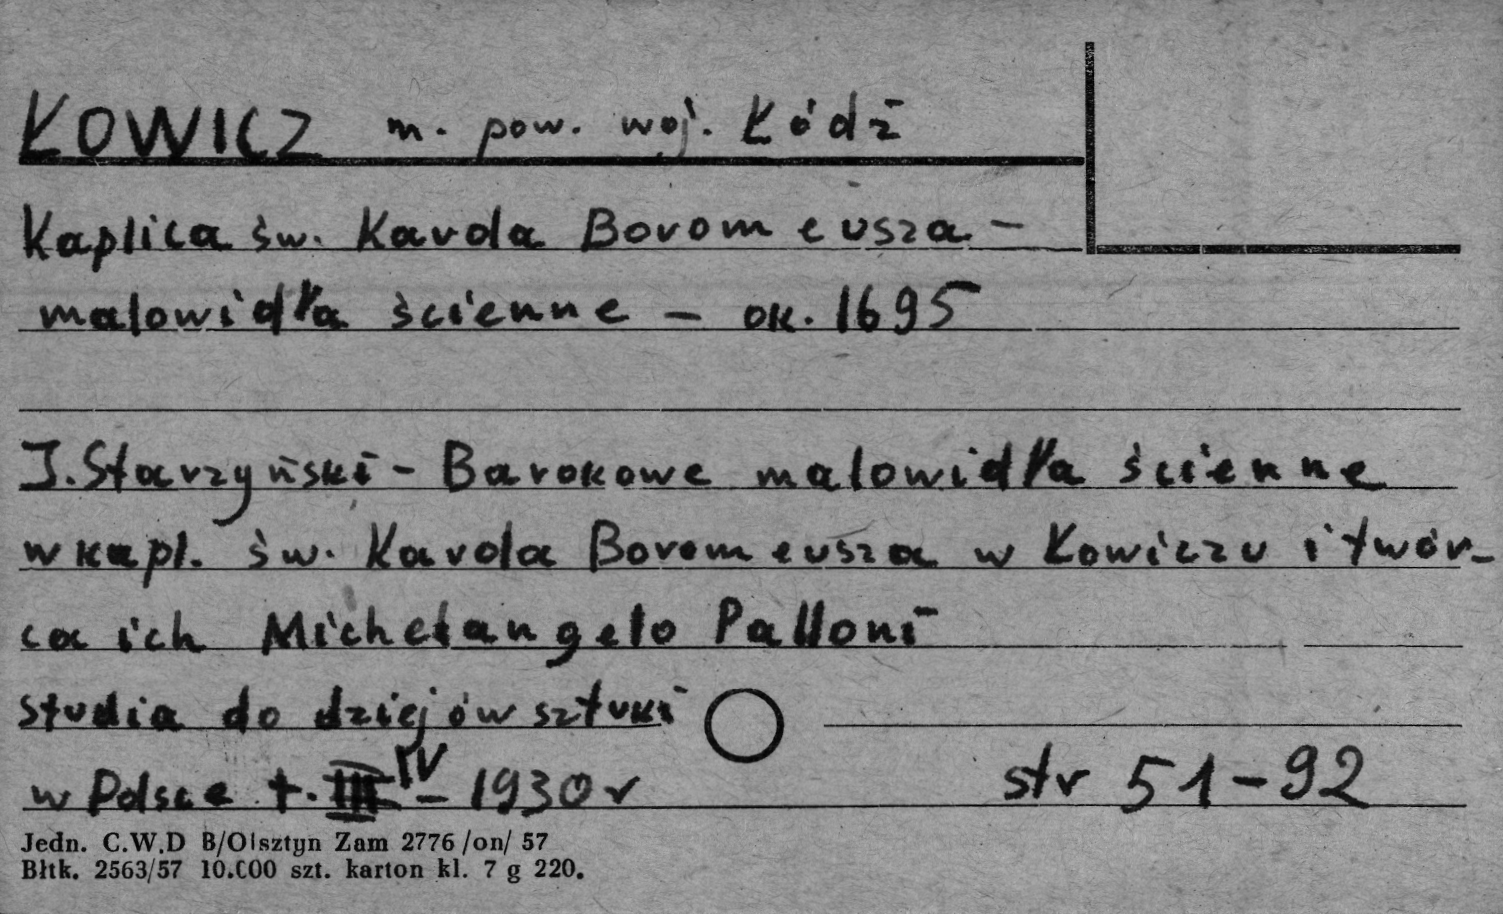 ŁOWICZ m. pow. woj. Łódź
Kaplica św. Karola Boromeusza –
malowidła ścienne – ok. 1695
J. Starzyński – Barokowe malowidła ścienne
w kapl. św. Karola Boromeusza w Łowiczu i twór-
ca ich Michelangelo Palloni
studia do dziejów sztuki
w Polsce t. III IV – 1930 r
str 51–92
Jedn. C.W.D B/Olsztyn Zam 2776 /on/ 57
Błtk. 2563/57 10.000 szt. karton kl. 7 g 220.